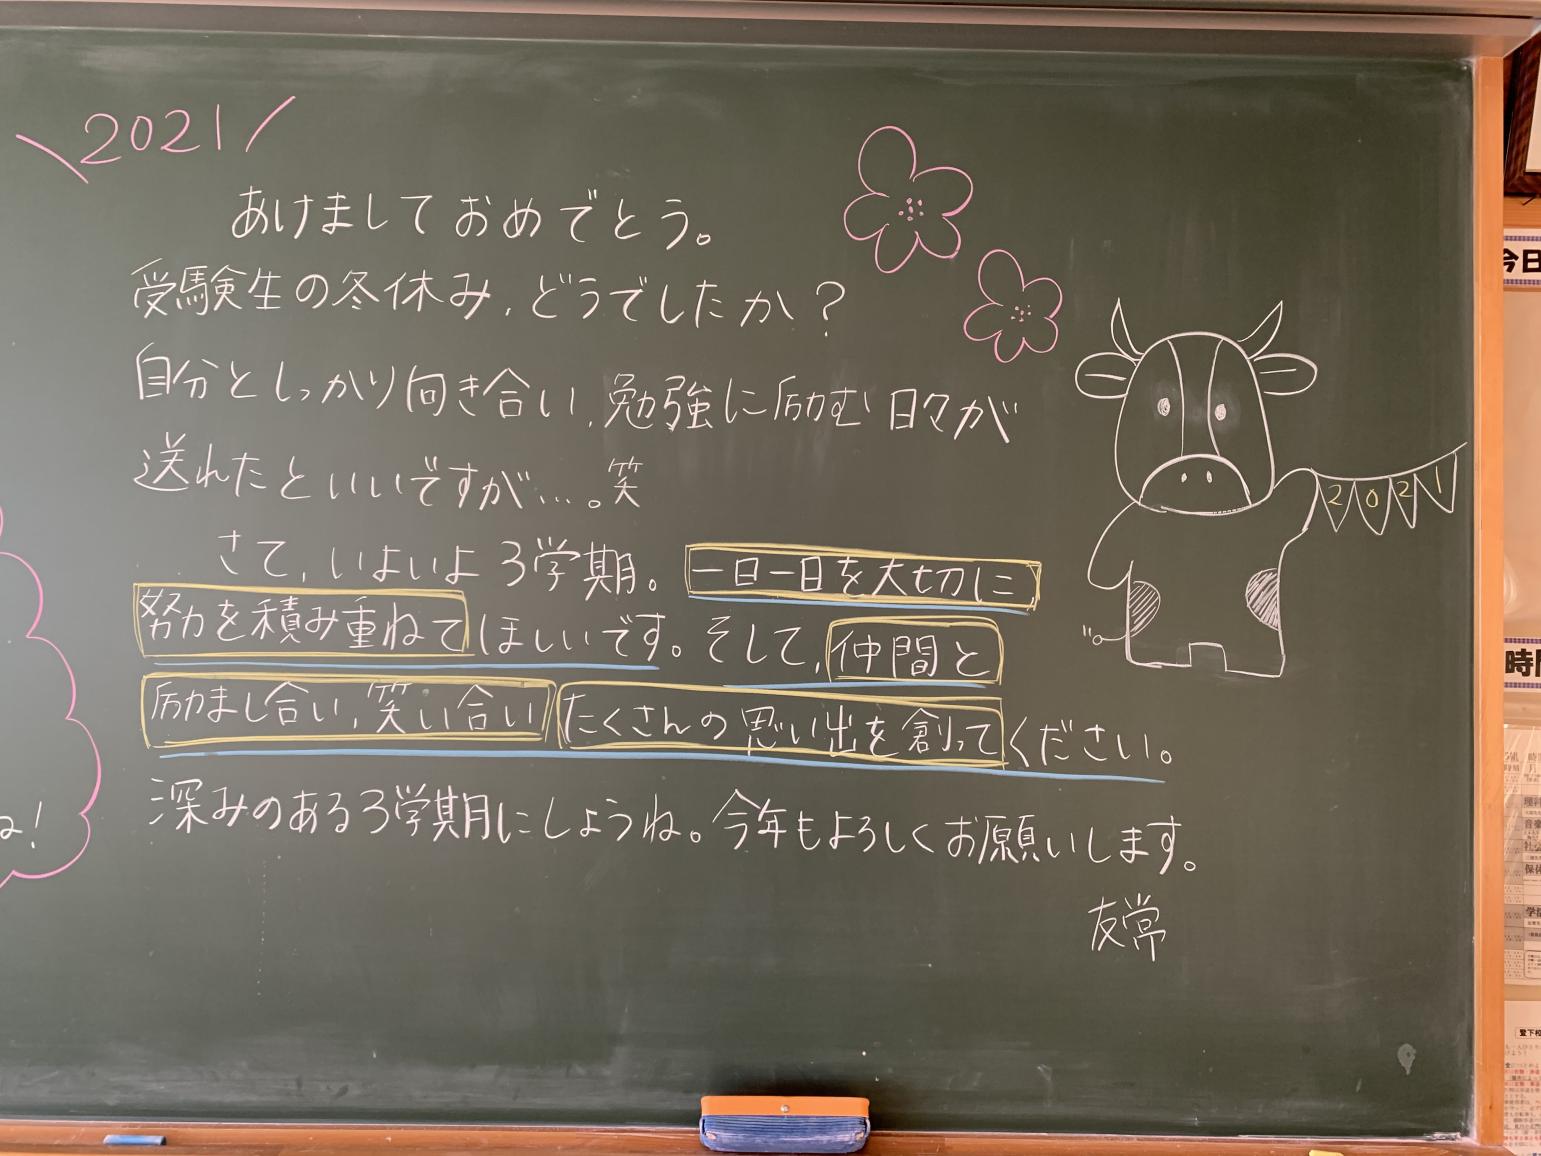 \2021/
あけましておめでとう。
受験生の冬休み,どうでしたか?
自分としっかり向き合い,勉強に励む日々が
送れたといいですが…。笑
さて,いよいよ3学期。一日一日を大切に
努力を積み重ねてほしいです。そして,仲間と
励まし合い,笑い合いたくさんの思い出を創ってください。
深みのある3学期にしようね。今年もよろしくお願いします。
友常
2021
ね!
今日
時間
理科
音楽
社会
保体